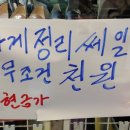 가게정리쎄일
무조건 천원
현금가